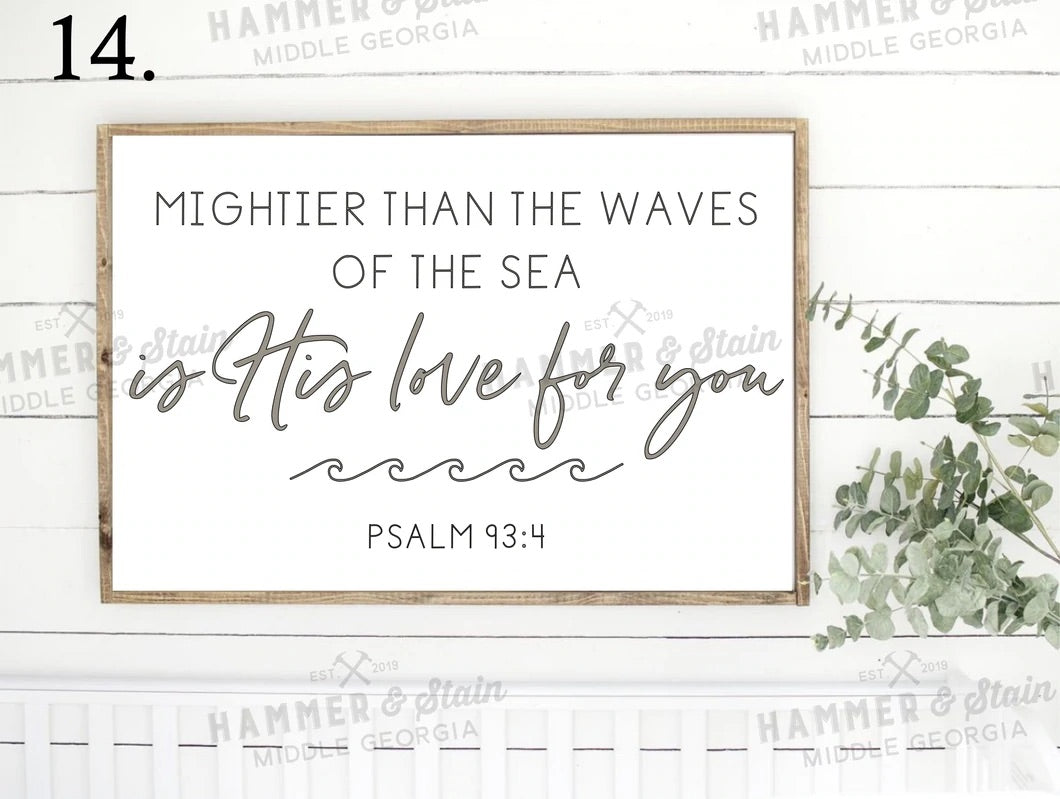 14.
HAMMER & Stain
MIDDLE GEORGIA
HAMMER & Stain
MIDDLE GEORGIA
MIGHTIER THAN THE WAVES
OF THE SEA
is His love for you
PSALM 93:4
EST. 2019
HAMMER & Stain
MIDDLE GEORGIA
EST. 2019
HAMMER & Stain
MIDDLE GEORGIA
EST. 2019
HAMMER & Stain
MIDDLE GEORGIA
EST. 2019
HAMMER & Stain
MIDDLE GEORGIA